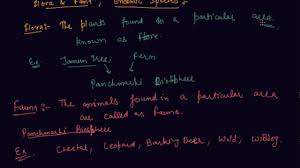 Flora & Fauna, Endemic Species:
Flora:- The plants found in a particular area
known as flore.
Ex Jamun Tree, Fern
Panchmarhi Biosphere
Fauna:- The animals found in a particular area
are called as Fauna.
Panchmarhi Biosphere
Ex Cheetal, Leopard, Barking Deer, Wild,